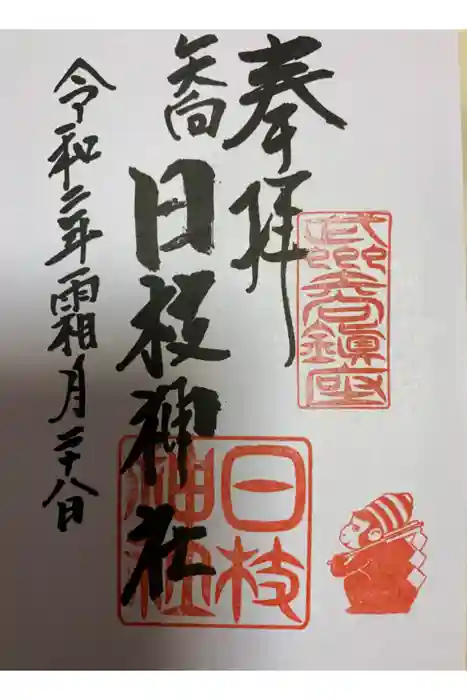 奉拝
武州矢向鎮座
矢向
日枝神社
日枝
神社
令和二年霜月二十八日